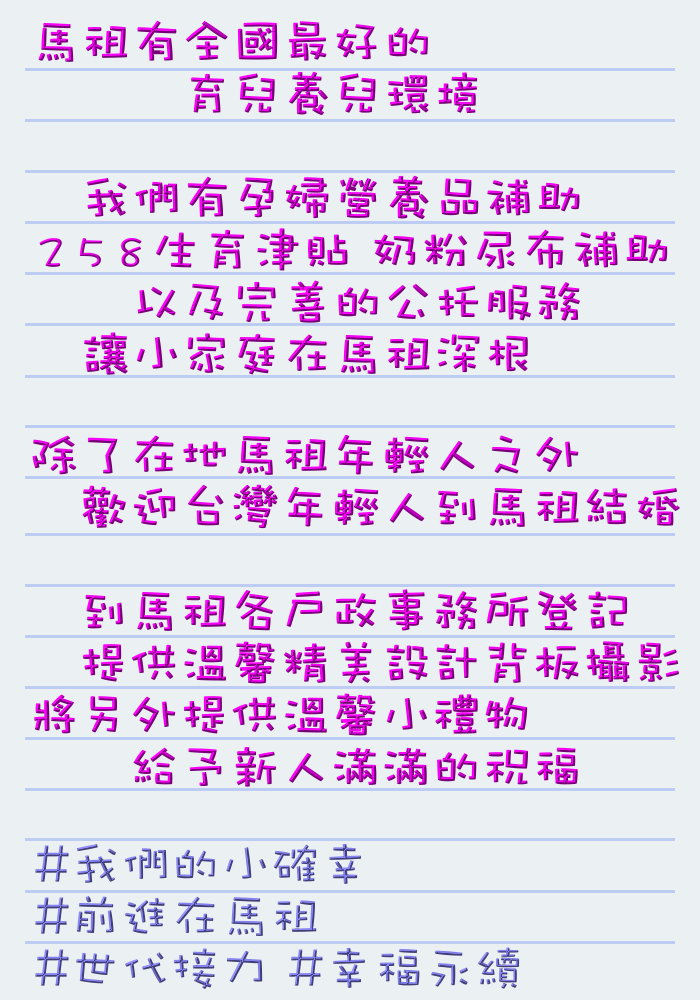 馬祖有全國最好的
育兒養兒環境
我們有孕婦營養品補助
258生育津貼 奶粉尿布補助
以及完善的公托服務
讓小家庭在馬祖深根
除了在地馬祖年輕人之外
歡迎台灣年輕人到馬祖結婚
到馬祖各戶政事務所登記
提供溫馨精美設計背板攝影
將另外提供溫馨小禮物
給予新人滿滿的祝福
#我們的小確幸
#前進在馬祖
#世代接力 #幸福永續